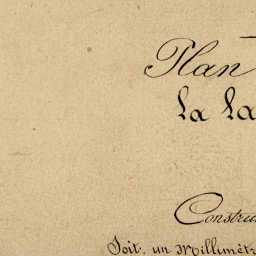 Plan
la La
Constru
Soit, un Millimètr